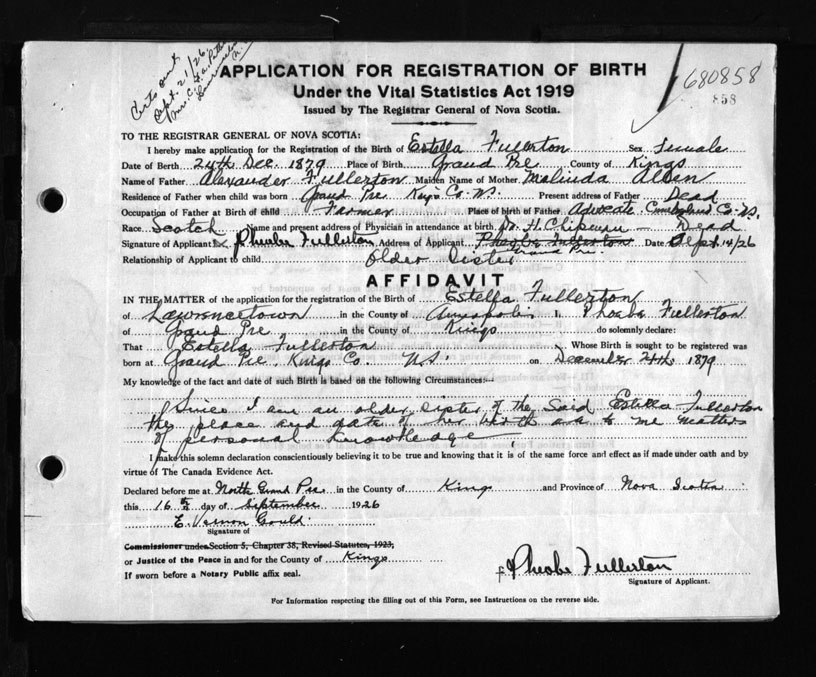 Certs sent
Sept. 21/26
Mrs. C.
Lawrencetown
APPLICATION FOR REGISTRATION OF BIRTH
Under the Vital Statistics Act 1919
Issued by The Registrar General of Nova Scotia.
680858
858
TO THE REGISTRAR GENERAL OF NOVA SCOTIA:
I hereby make application for the Registration of the Birth of Estella Fullerton Sex Female
Date of Birth 24th Dec. 1879 Place of Birth Grand Pre County of Kings
Name of Father Alexander Fullerton Maiden Name of Mother Malinda Alben
Residence of Father when child was born Grand Pre Kings Co. N.S. Present address of Father Dead
Occupation of Father at Birth of child Farmer Place of birth of Father Advocate Cumberland Co. N.S.
Race Scotch Name and present address of Physician in attendance at birth Dr. H. Chipman — Dead
Signature of Applicant x Phoebe Fullerton Address of Applicant Phoebe Fullerton Date Sept. 14/26
Grand Pre.
Relationship of Applicant to child Older Sister
AFFIDAVIT
IN THE MATTER of the application for the registration of the Birth of Estella Fullerton
of Lawrencetown in the County of Annapolis I, Phoebe Fullerton
of Grand Pre in the County of Kings do solemnly declare:
That Estella Fullerton Whose Birth is sought to be registered was
born at Grand Pre, Kings Co. N.S. on December 24th 1879
My knowledge of the fact and date of such Birth is based on the following Circumstances:—
Since I am an older sister of the said Estella Fullerton
the place and date of her birth are to me matters
of personal knowledge.
I make this solemn declaration conscientiously believing it to be true and knowing that it is of the same force and effect as if made under oath and by
virtue of The Canada Evidence Act.
Declared before me at North Grand Pre in the County of King and Province of Nova Scotia
this 16th day of September 1926
E. Vernon Gould.
Signature of
Commissioner under Section 5, Chapter 38, Revised Statutes, 1923,
or Justice of the Peace in and for the County of Kings
If sworn before a Notary Public affix seal.
Phoebe Fullerton
Signature of Applicant.
For Information respecting the filling out of this Form, see Instructions on the reverse side.